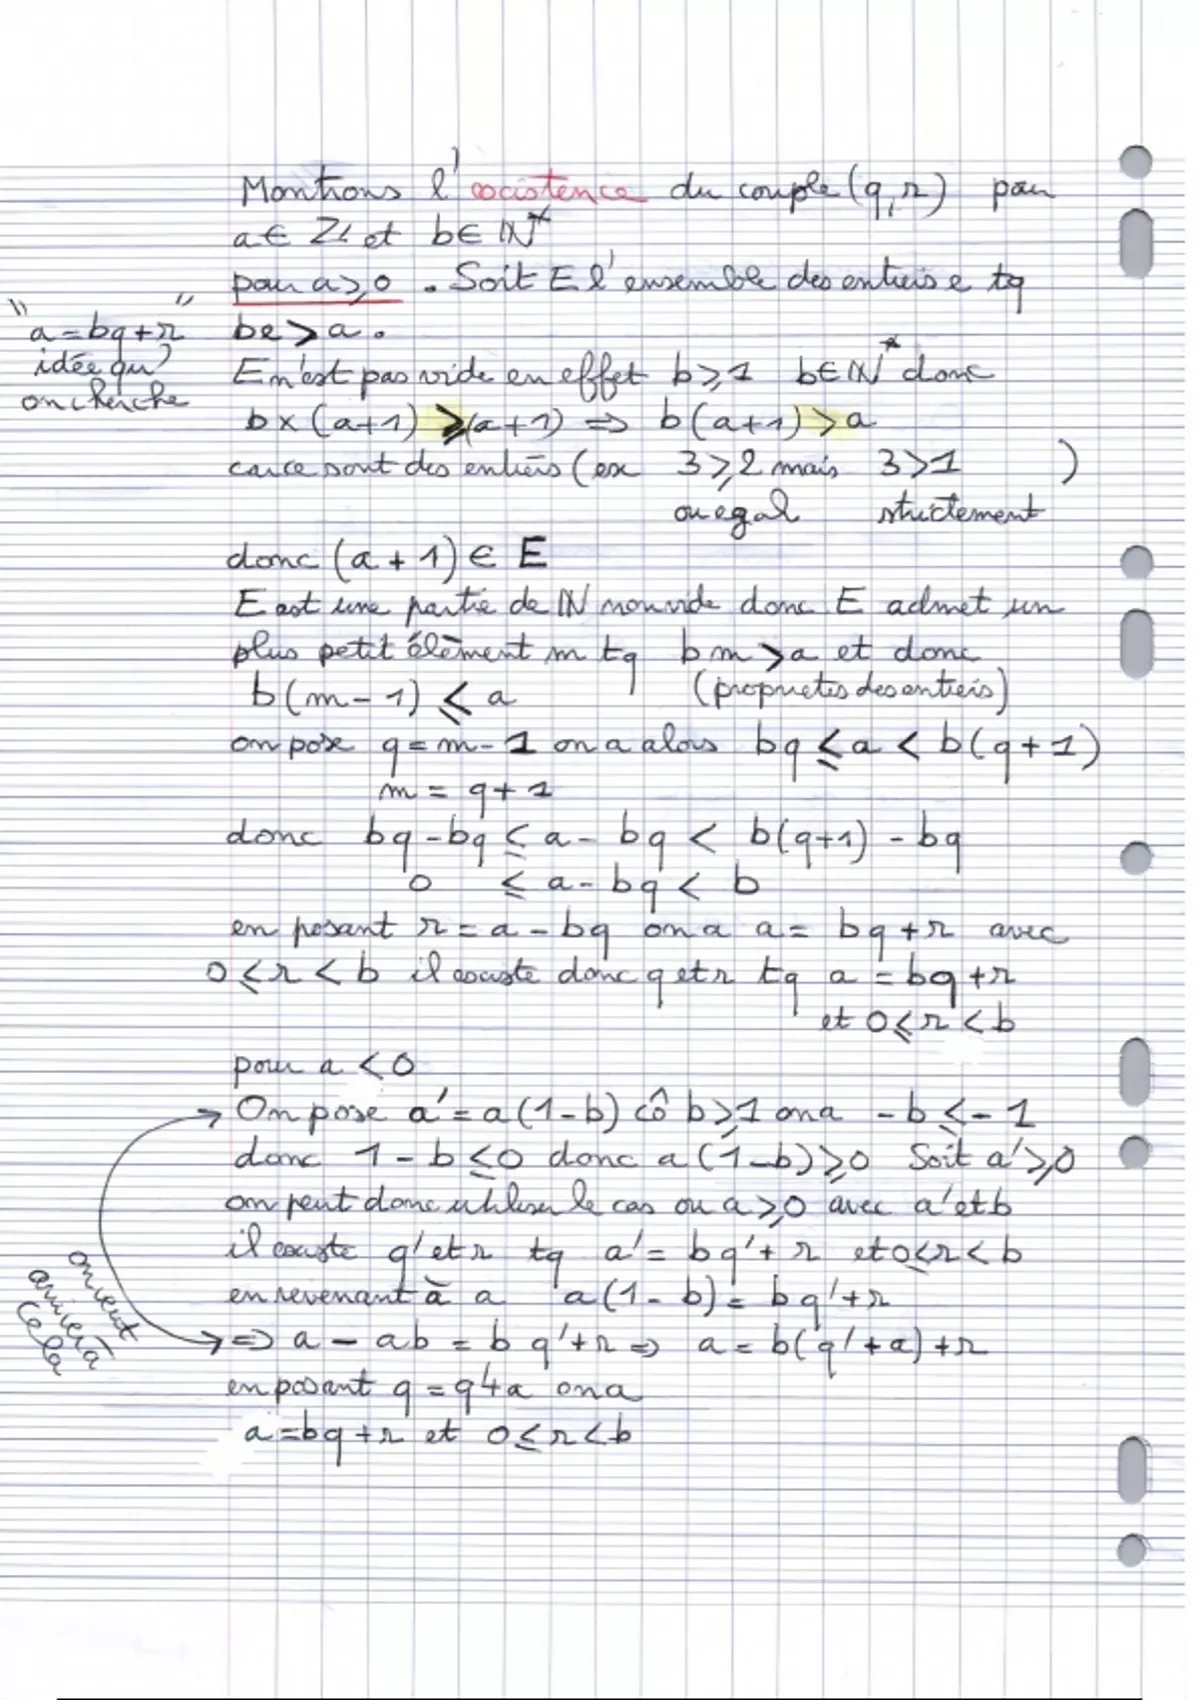 Montrons l'existence du couple (q,r) pour
a ∈ ℤ et b ∈ ℕ*
pour a ⩾ 0 . Soit E l'ensemble des entiers e tq
"a = bq + r"
idée qu'
on cherche
be > a.
E n'est pas vide en effet b ⩾ 1 b ∈ ℕ* donc
b × (a+1) ⩾ (a+1) ⇒ b(a+1) > a
car ce sont des entiers (ex 3 ⩾ 2 mais 3 > 1 )
ou egal strictement
donc (a + 1) ∈ E
E est une partie de ℕ non vide donc E admet un
plus petit élèment m tq bm > a et donc
b(m - 1) ⩽ a (proprietes des entiers)
on pose q = m - 1 on a alors bq ⩽ a < b(q + 1)
m = q + 1
donc bq - bq ⩽ a - bq < b(q+1) - bq
0 ⩽ a - bq < b
en posant r = a - bq on a a = bq + r avec
0 ⩽ r < b il existe donc q et r tq a = bq + r
et 0 ⩽ r < b
pour a < 0
On pose a' = a(1-b) cô b ⩾ 1 on a - b ⩽ - 1
donc 1 - b ⩽ 0 donc a(1-b) ⩾ 0 Soit a' ⩾ 0
on peut donc utiliser le cas ou a ⩾ 0 avec a' et b
il existe q' et r tq a' = bq' + r et 0 ⩽ r < b
en revenant à a a(1 - b) = bq' + r
on veut
arriver à
cela
⇒ a - ab = bq' + r ⇒ a = b(q' + a) + r
en posant q = q'+a on a
a = bq + r et 0 ⩽ r < b